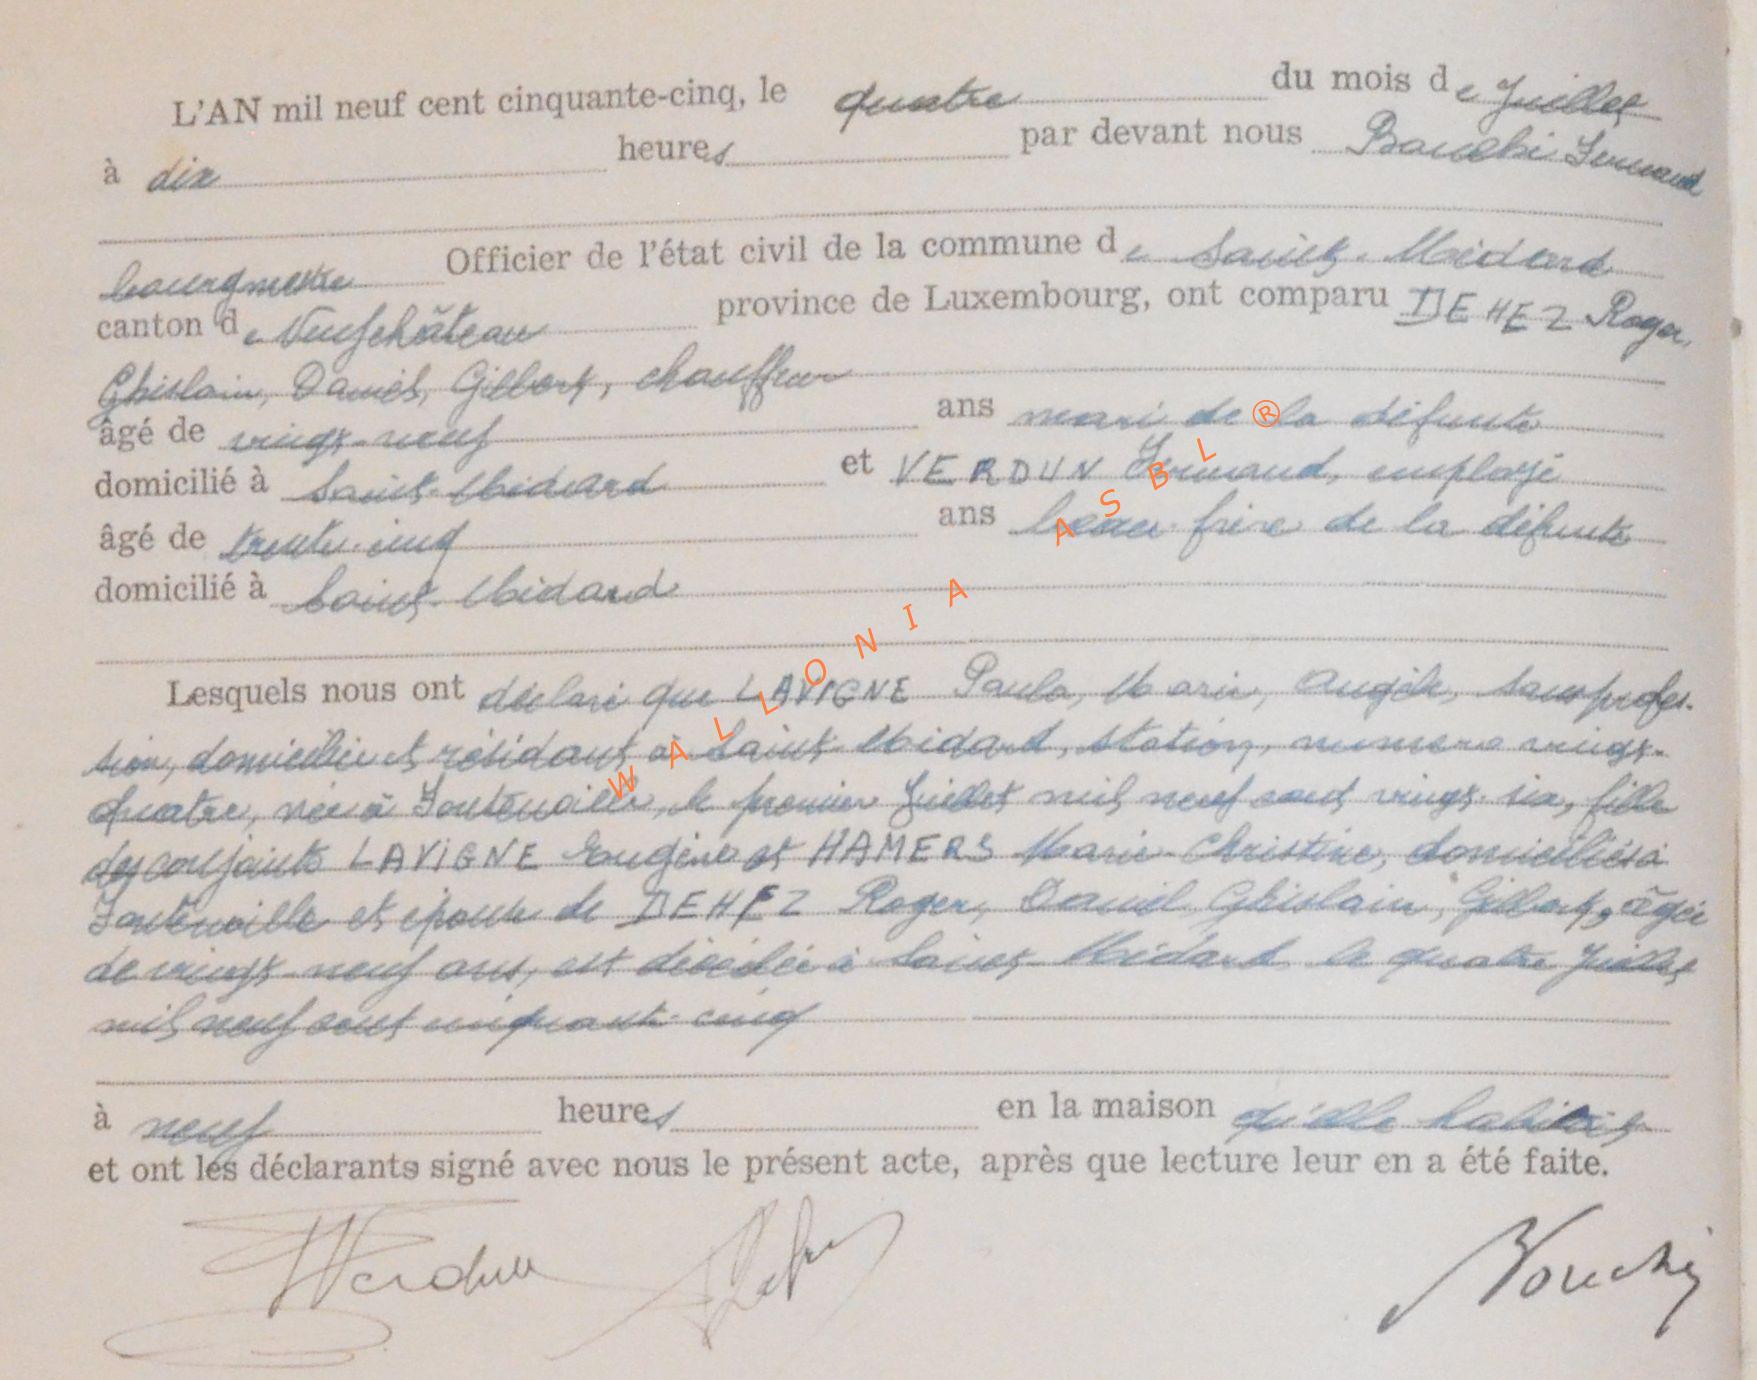 L'AN mil neuf cent cinquante-cinq, le quatre du mois de Juillet
à dix heures par devant nous
bourgmestre Officier de l'état civil de la commune de Saint-Médard
canton de Neufchâteau province de Luxembourg, ont comparu DEHEZ Roger,
Ghislain, Daniel, Gilbert, chauffeur
âgé de vingt-neuf ans mari de la défunte
domicilié à Saint-Médard et VERDUN employé
âgé de trente-cinq ans beau-frère de la défunte
domicilié à Saint-Médard
Lesquels nous ont déclaré que LAVIGNE Paula, Marie, Angèle, sans profes-
sion, domiciliée et résidant à Saint-Médard, station, numéro vingt-
quatre, née à Fontenoille, le premier Juillet mil neuf cent vingt-six, fille
des conjoints LAVIGNE Eugène et HAMERS Marie-Christine, domiciliés à
Fontenoille et épouse de DEHEZ Roger, Daniel, Ghislain, Gilbert, âgée
de vingt-neuf ans, est décédée à Saint-Médard le quatre Juillet
mil neuf cent cinquante-cinq
à neuf heures en la maison qu'elle habitait
et ont les déclarants signé avec nous le présent acte, après que lecture leur en a été faite.
Verdun
WALLONIA ASBL ®